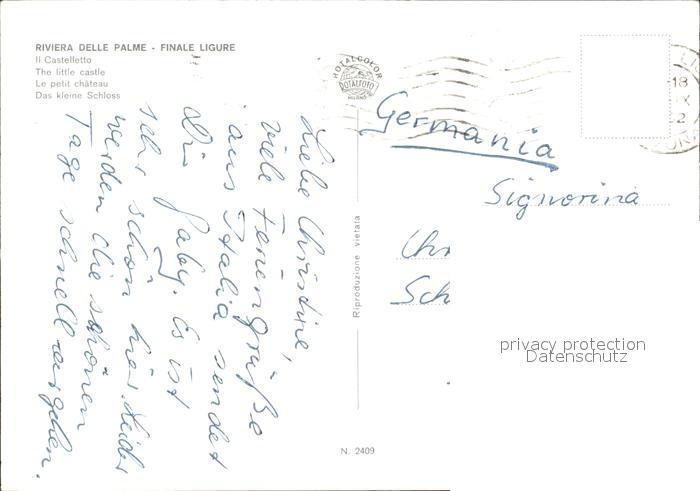 RIVIERA DELLE PALME - FINALE LIGURE
Il Castelletto
The little castle
Le petit château
Das kleine Schloss
ROTALCOLOR
ROTALFOTO
MILANO
Liebe Christine,
viele Feriengrüße
aus Italia sendet
Dir Gaby. Es ist
sehr schön hier. Leider
werden die schönen
Tage schnell vergehen.
Riproduzione vietata
N. 2409
18
Germania
Signorina
Chr
Sch
privacy protection
Datenschutz